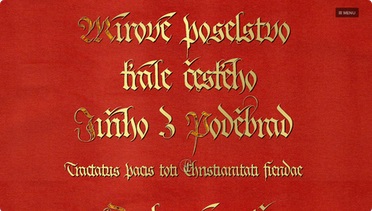 ≡ MENU
Mírové poselstvo
krále českého
Jiřího z Poděbrad
Tractatus pacis toti Christianitati fiendae